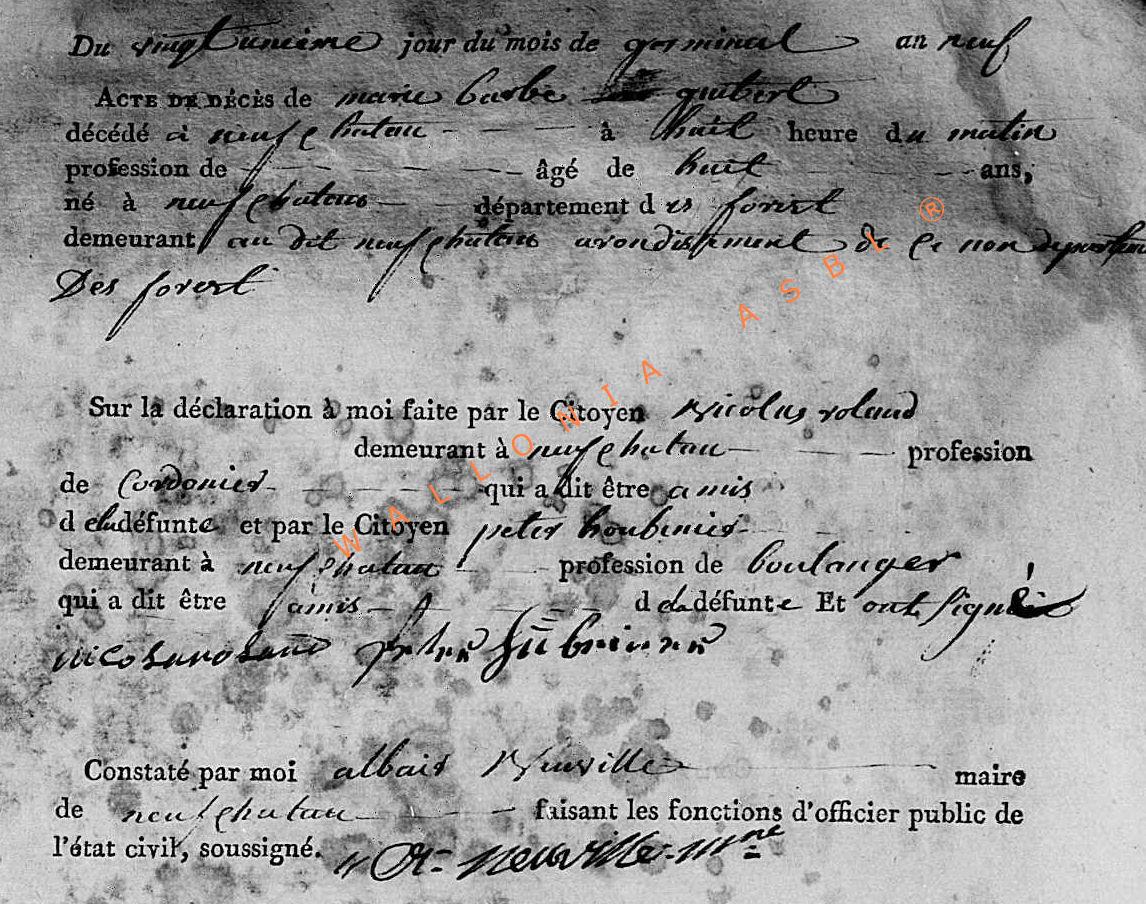 Du vingtuneime jour du mois de germinal an neuf
ACTE DE DÉCÈS de marie barbe guibert
décédé à neufchatau à huit heure du matin
profession de âgé de huit ans,
né à neufchatau département des forest
demeurant au dit neufchatau arondissement de ce non departem
Des forest
Sur la déclaration à moi faite par le Citoyen Nicolas roland
demeurant à neufchatau profession
de Cordonier qui a dit être amis
d ela défunte et par le Citoyen peter houbinier
demeurant à neufchatau profession de boulanger
qui a dit être amis d ela défunte Et ont signé
nicolas roland peter
Constaté par moi Neuville maire
de neufchatau faisant les fonctions d'officier public de
l'état civil, soussigné. Neuville m.re
WALLONIA ASBL ®